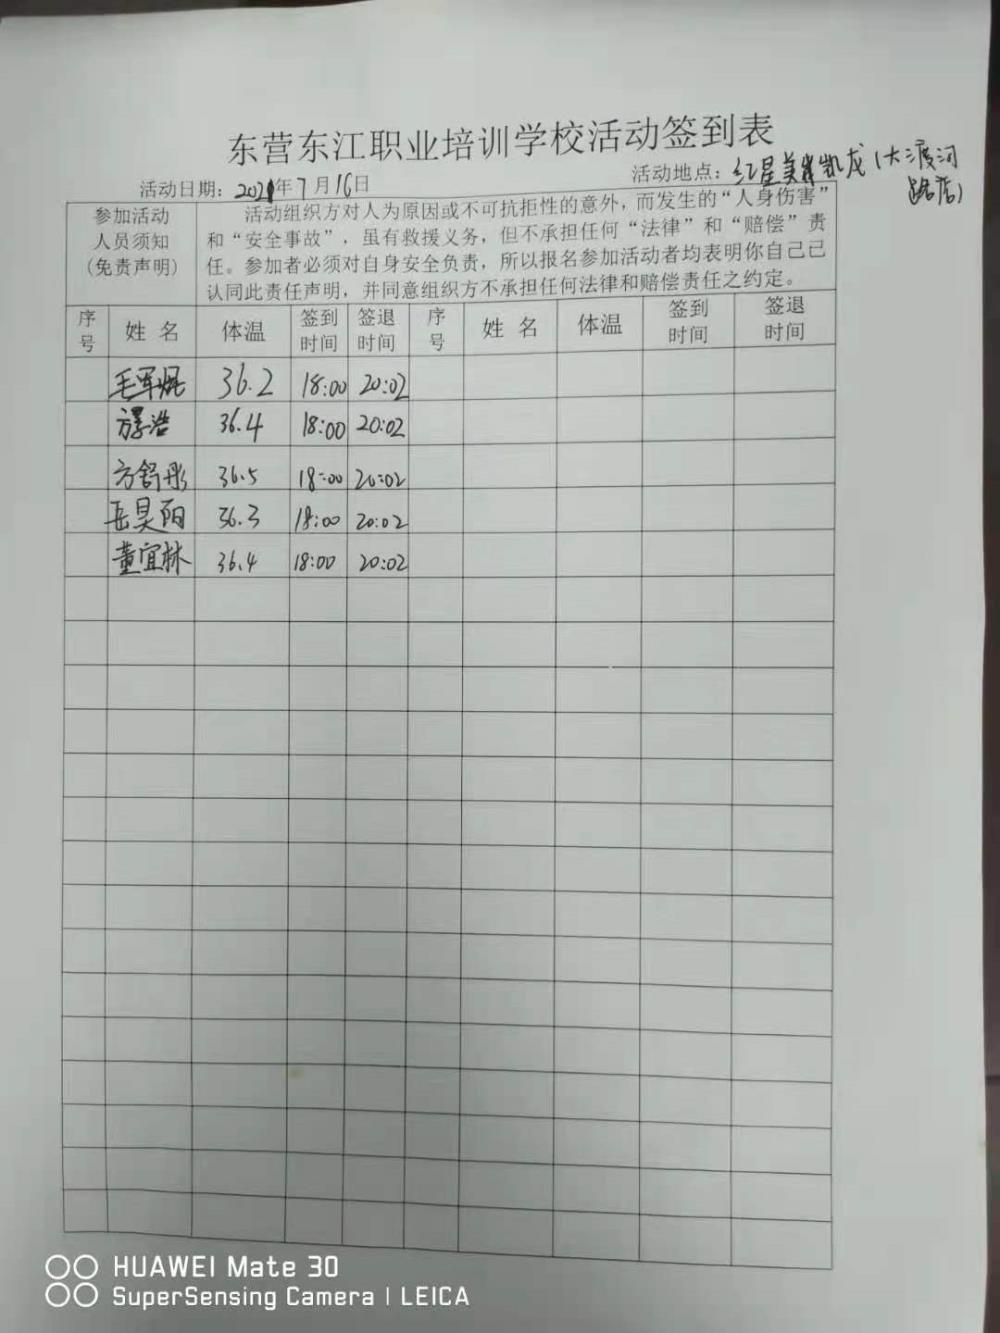 东营东江职业培训学校活动签到表
活动日期：2021年7月16日 活动地点：红星美凯龙（大渡河
路店）
参加活动
人员须知
(免责声明)
活动组织方对人为原因或不可抗拒性的意外，而发生的“人身伤害”
和“安全事故”，虽有救援义务，但不承担任何“法律”和“赔偿”责
任。参加者必须对自身安全负责，所以报名参加活动者均表明你自己已
认同此责任声明，并同意组织方不承担任何法律和赔偿责任之约定。
序号 姓名 体温 签到时间 签退时间 序号 姓名 体温 签到时间 签退时间
36.2 18:00 20:02
36.4 18:00 20:02
方舒彤 36.5 18:00 20:02
岳昊阳 36.3 18:00 20:02
董宜林 36.4 18:00 20:02
HUAWEI Mate 30
SuperSensing Camera | LEICA